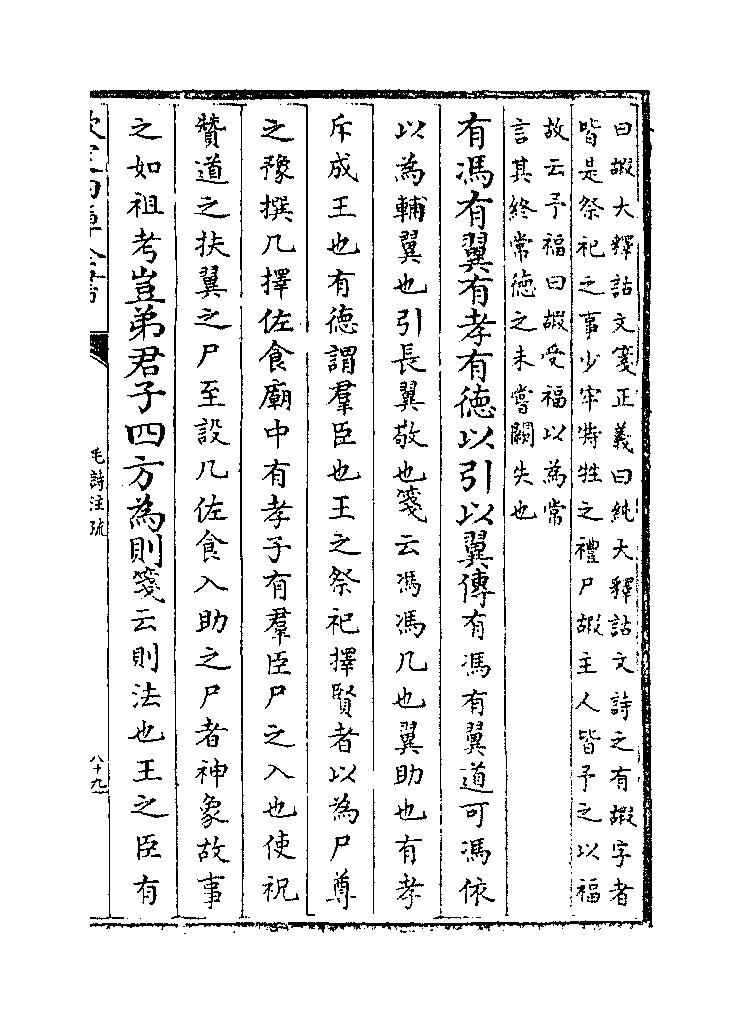 曰嘏大釋詁文箋正義曰純大釋詁文詩之有嘏字者
皆是祭祀之事少牢特牲之禮尸嘏主人皆予之以福
故云予福曰嘏受福以為常
言其終常徳之未嘗闕失也
有馮有翼有孝有徳以引以翼傳有馮有翼道可馮依
以為輔翼也引長翼敬也箋云馮馮几也翼助也有孝
斥成王也有徳謂羣臣也王之祭祀擇賢者以為尸尊
之豫撰几擇佐食廟中有孝子有羣臣尸之入也使祝
贊道之扶翼之尸至設几佐食入助之尸者神象故事
之如祖考豈弟君子四方為則箋云則法也王之臣有
毛詩注疏
八十九